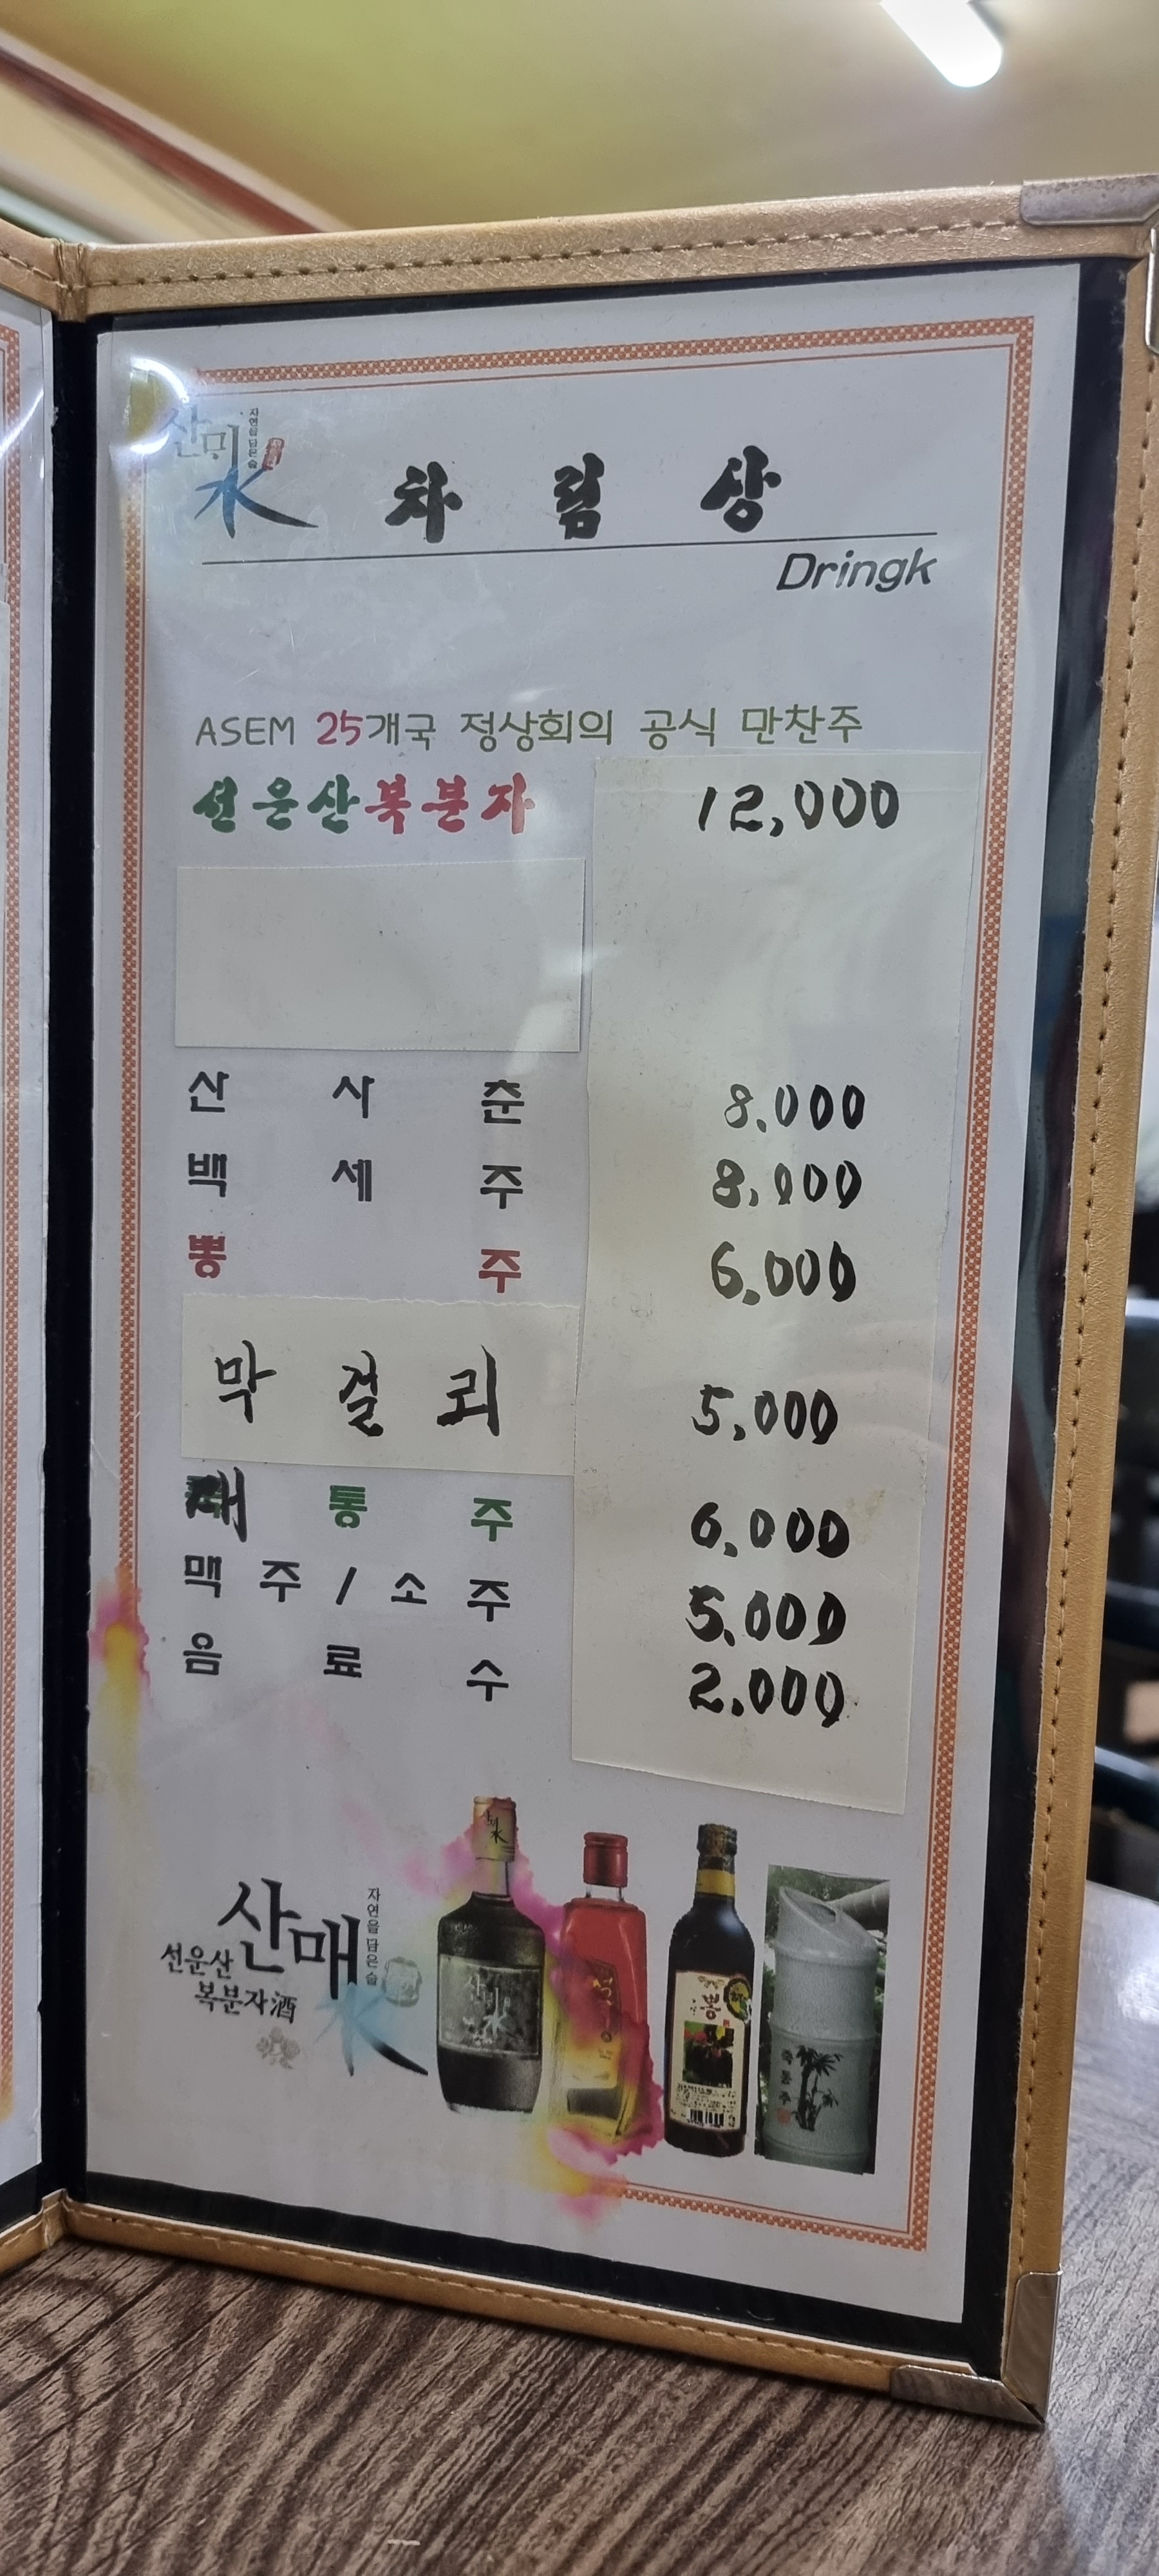 산매
水
자연을 담은 술
차림상
Dringk
ASEM 25개국 정상회의 공식 만찬주
선운산복분자 12,000
산사춘 8,000
백세주 8,000
뽕주 6,000
막걸리 5,000
대통주 6,000
맥주/소주 5,000
음료수 2,000
산매
水
자연을 담은 술
선운산
복분자酒
산매
水
뽕
죽통주